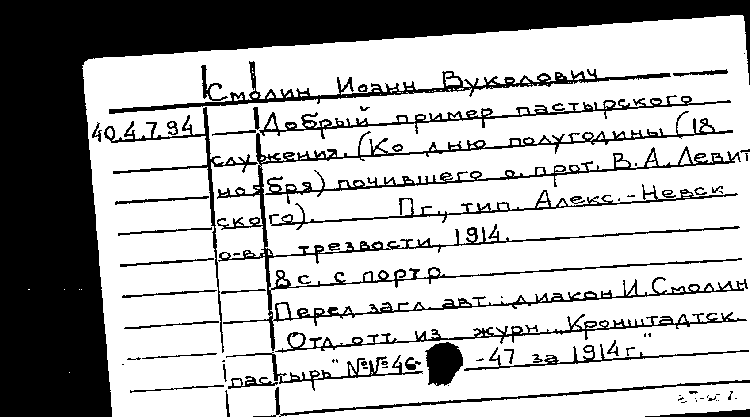 Смолин, Иоанн Вуколович
40.4.7.94 Добрый пример пастырского
служения. (Ко дню полугодины (18
ноября) почившего о. прот. В.А. Левит
ского). Пг., тип. Алекс.-Невск
о-ва трезвости, 1914.
8 с. с портр.
Перед загл. авт.: диакон И. Смолин
Отд. отт. из журн. „Кронштадтск.
пастырь" №№ 46 -47 за 1914 г."